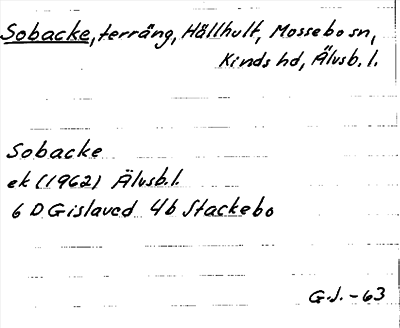 Sobacke, terräng, Hällhult, Mossebo sn,
Kinds hd, Älvsb. l.
Sobacke
ek (1962) Älvsb.l.
6 D Gislaved 4b Stackebo
G.J. -63